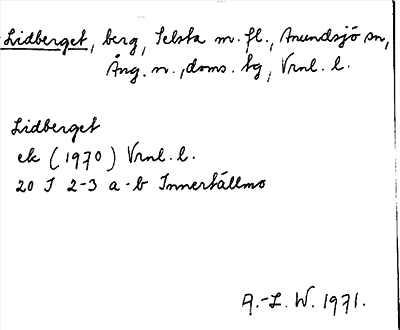 Lidberget, berg, Selsta m. fl., Anundsjö sn,
Ång. n., doms. tg, Vrnl. l.
Lidberget
ek (1970) Vrnl. l.
20 J 2-3 a-b Innertällmo
A.-L. W. 1971.